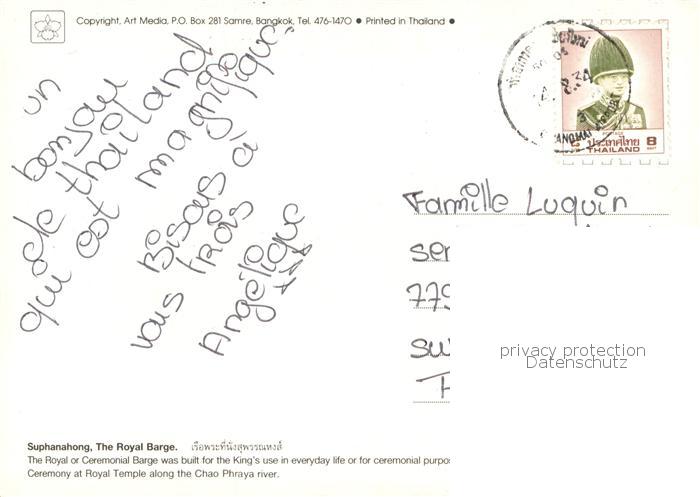 Copyright, Art Media, P.O. Box 281 Samre, Bangkok, Tel. 476-1470 ● Printed in Thailand ●
un
bonjour
de thaïland
qui est magnifique
Bisous à
vous trois
Angélique
POSTAGE
ประเทศไทย 8
THAILAND BAHT
Famille Luquin
ser
779
su
F
privacy protection
Datenschutz
Suphanahong, The Royal Barge. เรือพระที่นั่งสุพรรณหงส์
The Royal or Ceremonial Barge was built for the King's use in everyday life or for ceremonial purpo
Ceremony at Royal Temple along the Chao Phraya river.